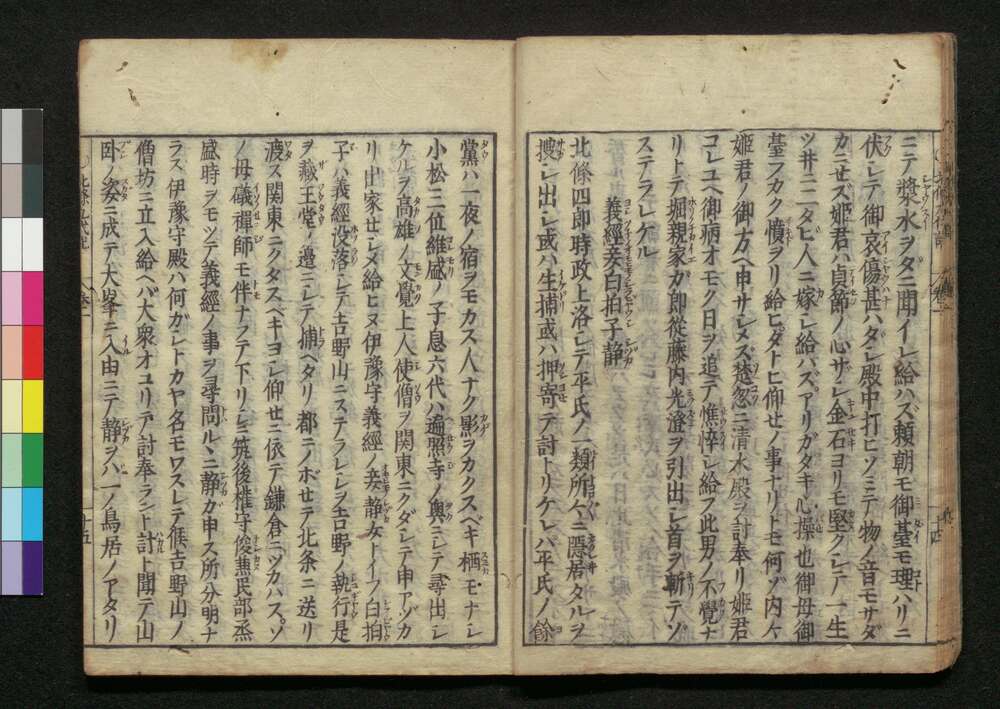 ニテ漿水ヲタニ聞イレ給ハズ頼朝モ御臺モ理ハリニ
伏シテ御哀傷甚ハタシ殿中打ヒソミテ物ノ音モサダ
カニせズ姫君ハ貞節ノ心ザシ金石ヨリモ堅クシテ一生
ツ井ニ二タヒ人ニ嫁シ給ハズアリガタキ心操也御母御
臺フカク憤ヲリ給ヒタトヒ仰せノ事ナリトモ何ゾ内々
姫君ノ御方ヘ申サシメス楚忽ニ清水殿ヲ討奉リ姫君
コレユヘ御病オモク日ヲ追テ憔悴シ給フ此男ノ不覺ナ
リトテ堀親家カ郎從藤内光澄ヲ引出シ首ヲ斬テソ
ステラレケル
義經妾白拍子靜
北條四郎時政上洛シテ平氏ノ一類所々ニ隱居タルヲ
搜シ出シ或ハ生捕或ハ押寄テ討トリケレバ平氏ノ餘
黨ハ一夜ノ宿ヲモカス人ナク影ヲカクスベキ栖モナシ
小松三位維盛ノ子息六代ハ遍照寺ノ奥ニシテ尋出シ
ケルヲ高雄ノ文覺上人使僧ヲ関東ニクダシテ申アヅカ
リ出家せシメ給ヒヌ伊豫守義經ノ妾静女トイフ白拍
子ハ義經没落シテ吉野山ニステラレシヲ吉野ノ執行是
ヲ藏王堂ノ邉ニシテ捕ヘタリ都ニノボせテ北条ニ送リ
渡ス関東ニクダスベキヨシ仰せニ依テ鎌倉ニツカハスソ
ノ母礒禪師モ伴ナフテ下リシ筑後権守俊兼民部丞
盛時ヲモツテ義經ノ事ヲ尋問ルヽニ静カ申ス所分明ナ
ラス伊豫守殿ハ何ガシトカヤ名モワスレテ候吉野山ノ
僧坊ニ立入給ヘバ大衆オコリテ討奉ラント計ト聞テ山
臥ノ姿ニ成テ大峯ニ入由ニテ静ヲハ一ノ鳥居ノアタリ
北條九代記
巻二
十五